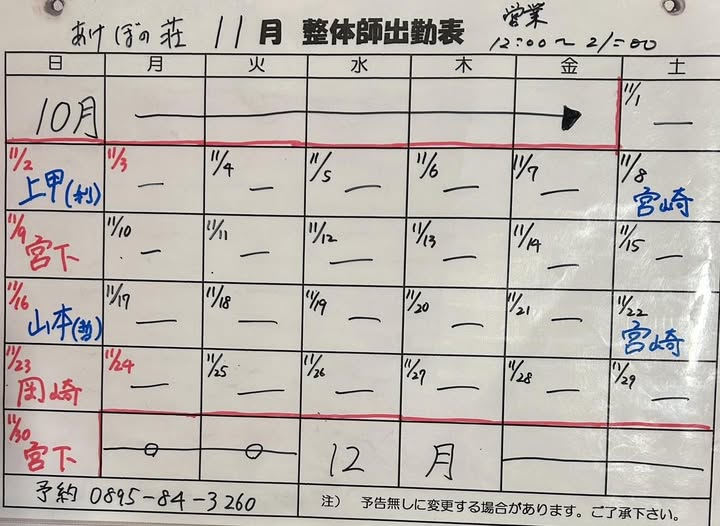 あけぼの荘 11月 整体師出勤表 営業
12:00～21:00
日 月 火 水 木 金 土
10月 11/1 —
11/2 上甲(利) 11/3 — 11/4 — 11/5 — 11/6 — 11/7 — 11/8 宮崎
11/9 宮下 11/10 — 11/11 — 11/12 — 11/13 — 11/14 — 11/15 —
11/16 山本(哲) 11/17 — 11/18 — 11/19 — 11/20 — 11/21 — 11/22 宮崎
11/23 岡崎 11/24 — 11/25 — 11/26 — 11/27 — 11/28 — 11/29 —
11/30 宮下 12月
予約 0895-84-3260 注） 予告無しに変更する場合があります。ご了承下さい。